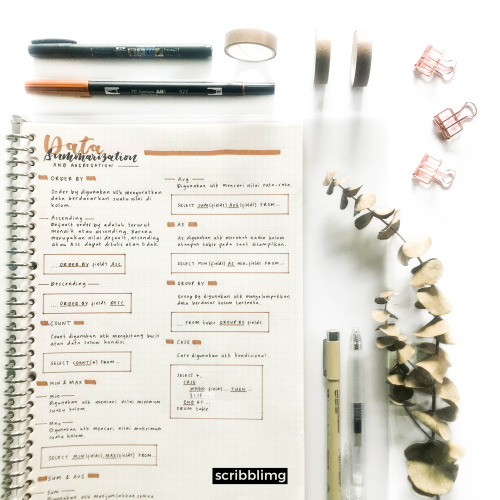 Data
Summarization
AND AGGREGATION
ORDER BY
Order by digunakan utk mengurutkan
data berdasarkan suatu nilai di
kolom.
Ascending
Default order by adalah terurut
menaik atau ascending. Karena
merupakan nilai default, ascending
atau ASC dapat ditulis atau tidak
... ORDER BY fields ASC
Descending
... ORDER BY fields DESC
COUNT
Count digunakan utk menghitung baris
atau data sesuai kondisi.
SELECT COUNT(*) FROM...
MIN & MAX
Min
Digunakan utk mencari nilai minimum
suatu kolom.
Max
Digunakan utk mencari nilai maksimum
suatu kolom.
SELECT MIN(fields), MAX(fields) FROM...
SUM & AVG
Sum
Digunakan utk menjumlahkan semua
Avg
Digunakan utk mencari nilai rata-rata.
SELECT SUM(fields) AVG(fields) FROM...
AS
As digunakan utk merubah nama kolom
ataupun table pada saat ditampilkan.
SELECT MIN(fields) AS min_fields FROM...
GROUP BY
Group by digunakan utk mengelompokkan
data berdasar kolom tertentu.
... FROM table GROUP BY fields
CASE
Case digunakan utk kondisional.
SELECT *,
CASE
WHEN fields ... THEN ...
ELSE ...
END AS ...
FROM table
ABT
977
scribblimg